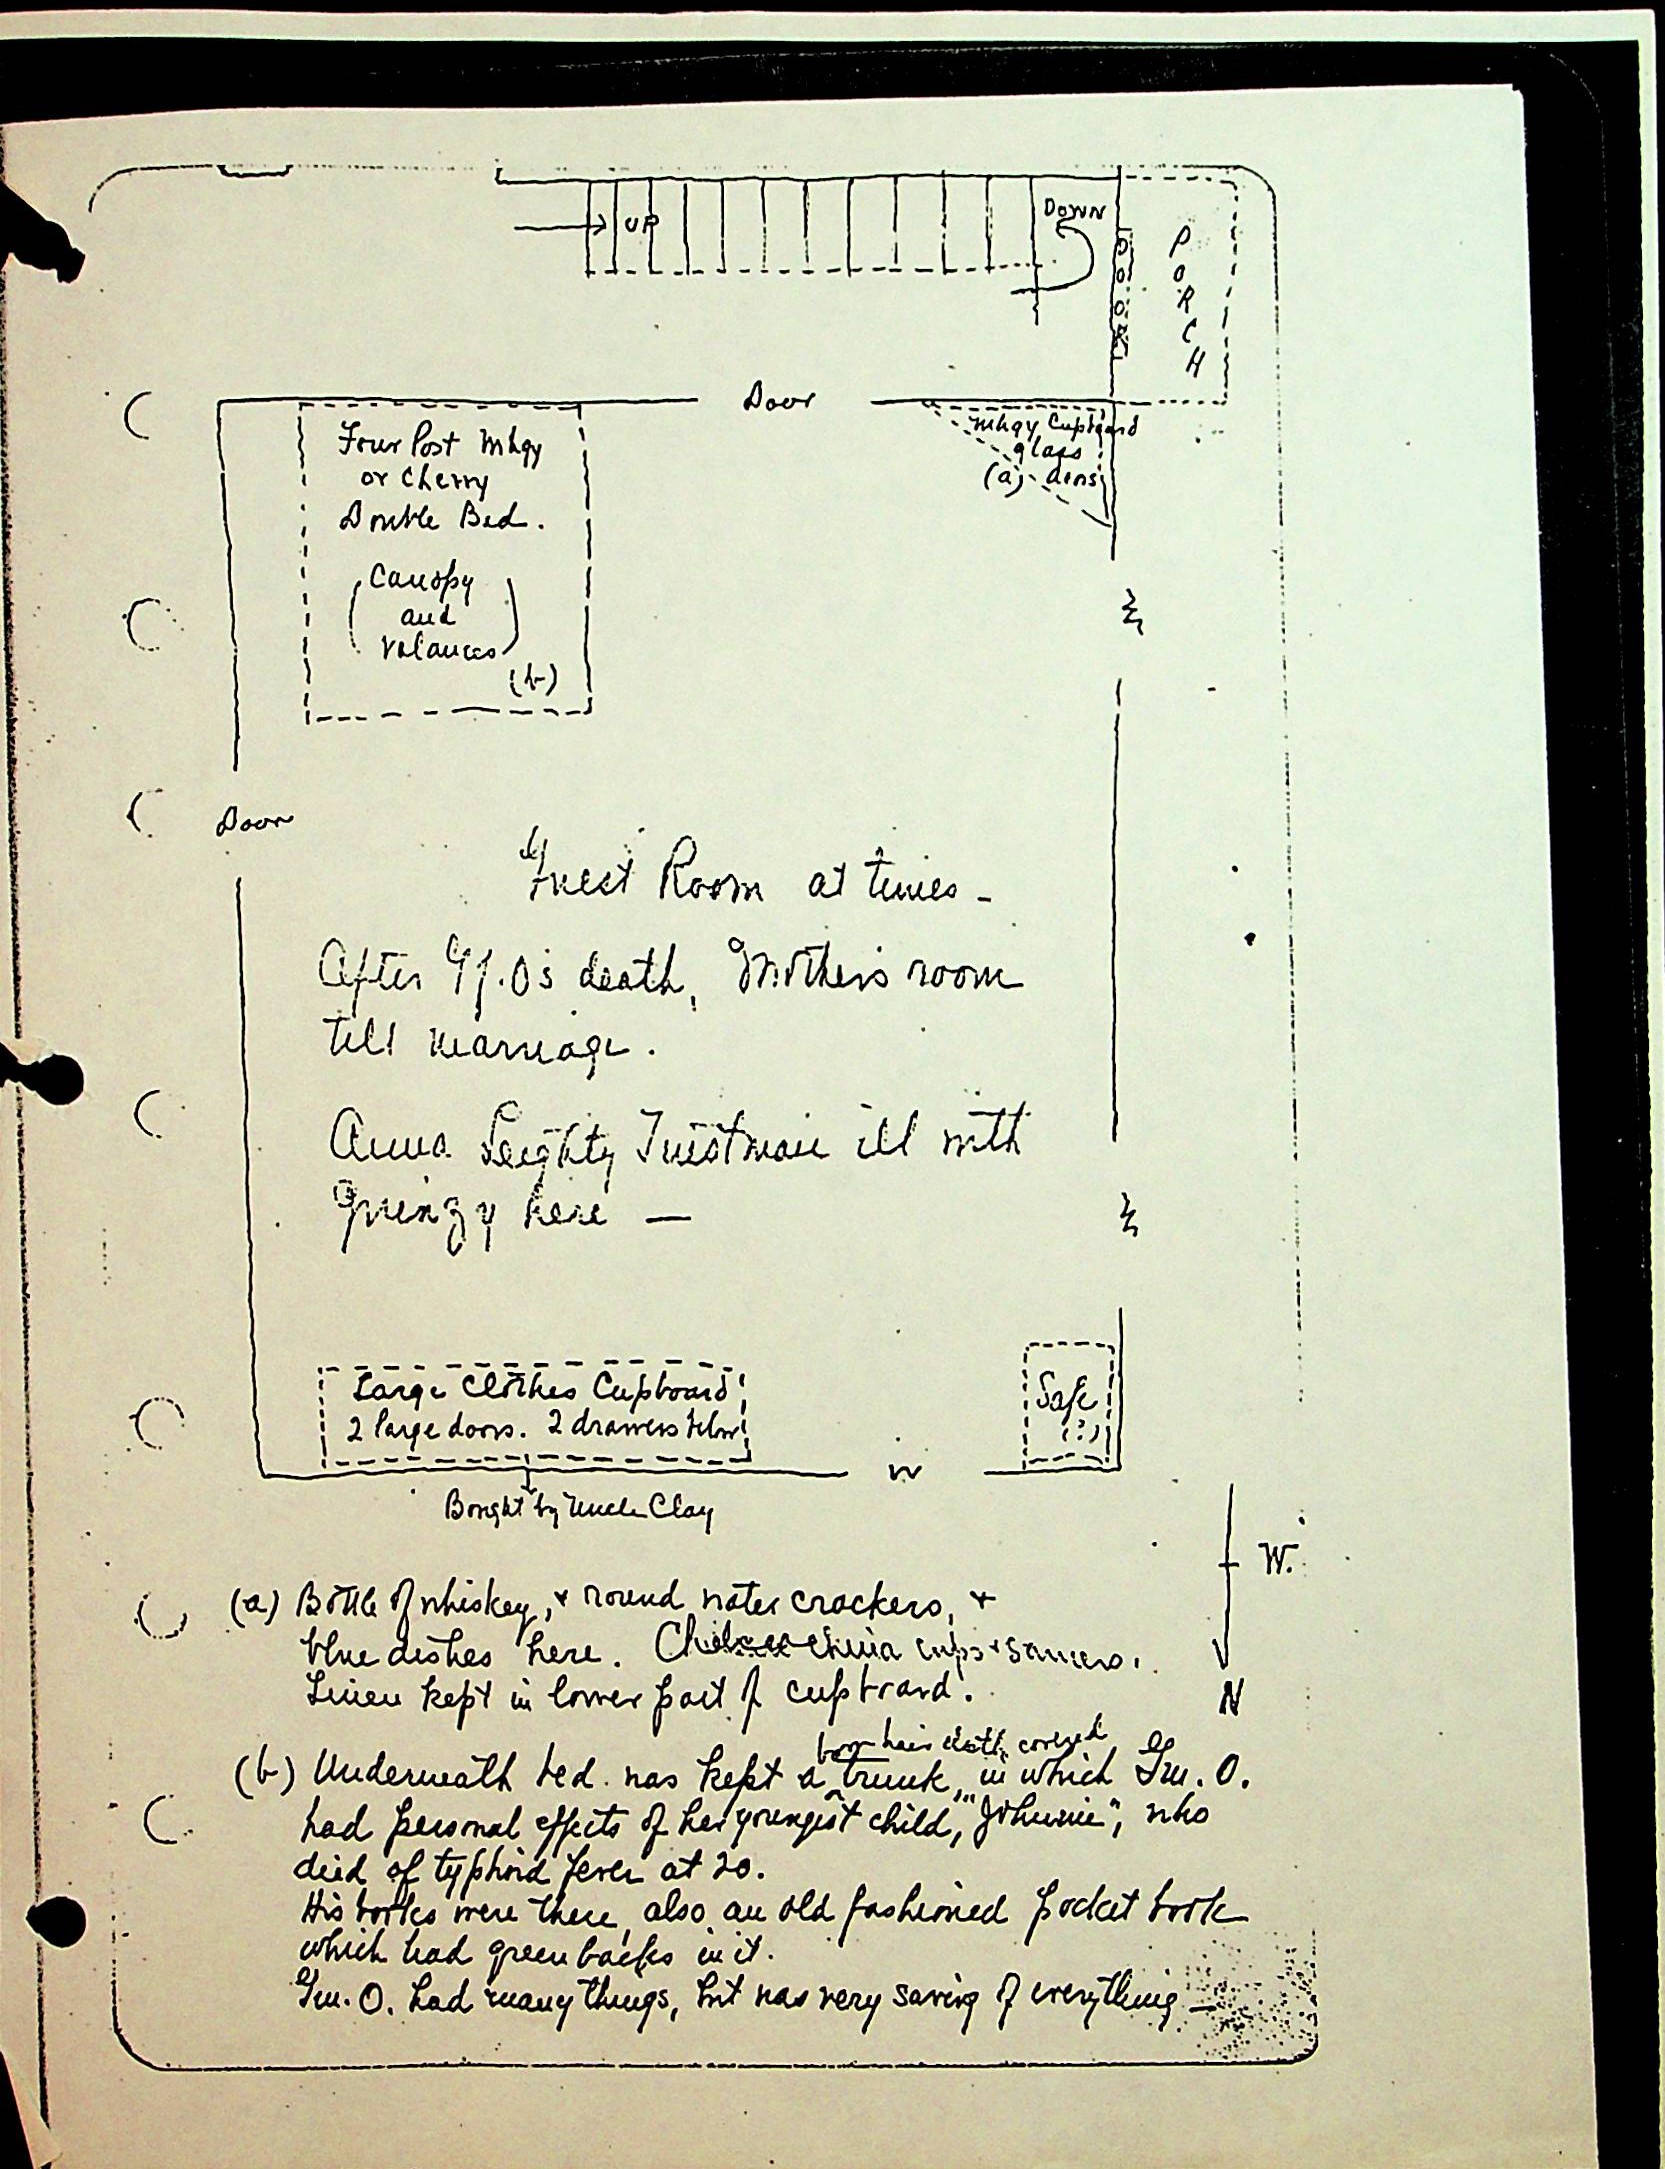 UP
DOWN
DOOR
PORCH
Door
Four Post Mhgy
or Cherry
Double Bed.
(Canopy
and
Valances)
(b)
Mhgy Cupboard
glass
(a) doors
W
Door
Guest Room at times -
After G.O's death, Mother's room
till marriage.
Anna Leighty Tustman ill with
quinzy here —
W
Large Clothes Cupboard
2 large doors. 2 drawers below
Safe
(?)
W
Bought by Uncle Clay
W.
N
(a) Bottle of whiskey, + round water crackers, +
blue dishes here. Chelsea china cups + saucers.
Linen kept in lower part of cupboard.
hair cloth covered
(b) Underneath bed was kept a trunk, in which Gm. O.
had personal effects of her youngest child, "Johnnie", who
died of typhoid fever at 20.
His books were there, also an old fashioned pocket book
which had greenbacks in it.
Gm. O. had many things, but was very saving of everything —